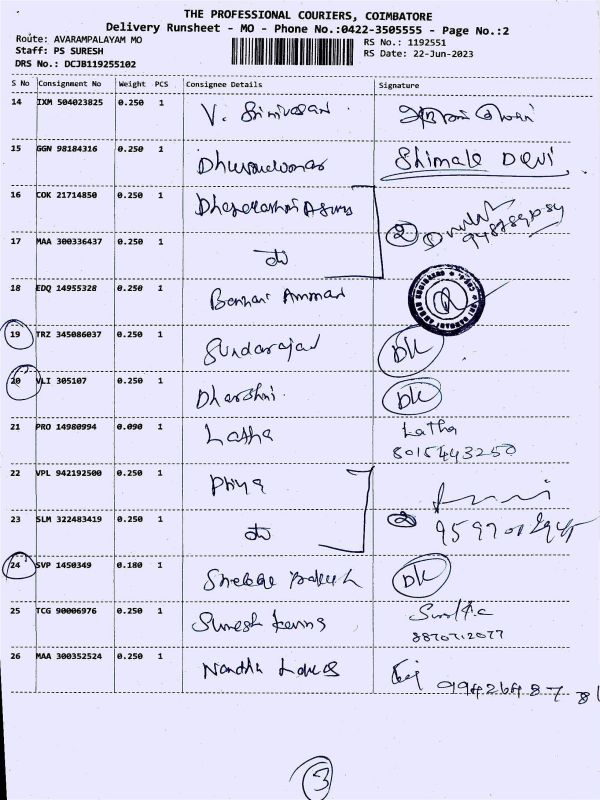 THE PROFESSIONAL COURIERS, COIMBATORE
Delivery Runsheet - MO - Phone No.:0422-3505555 - Page No.:2
Route: AVARAMPALAYAM MO
RS No.: 1192551
Staff: PS SURESH
RS Date: 22-Jun-2023
DRS No.: DCJB119255102
S No Consignment No Weight PCS Consignee Details Signature
14 IXM 504023825 0.250 1 V. Srinivasan
15 GGN 98184316 0.250 1 Shimale Devi
16 COK 21714850 0.250 1
17 MAA 300336437 0.250 1 do
2
18 EDQ 14955328 0.250 1 Bannari Amman
19 TRZ 345086037 0.250 1 Sundarajan DK
20 VLI 305107 0.250 1 Dharshni. DK
21 PRO 14980994 0.090 1 Latha Latha
8015443250
22 VPL 942192500 0.250 1 Priya
23 SLM 322483419 0.250 1 do 2
24 SVP 1450349 0.180 1 DK
25 TCG 90006976 0.250 1 Suresh
8870712077
26 MAA 300352524 0.250 1 Nandha
3